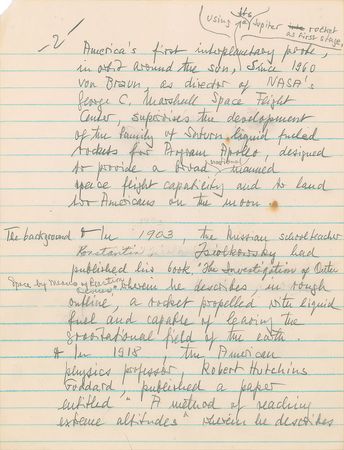 using the Jupiter rocket
as first stage,
-2-
America's first interplanetary probe,
in orbit around the sun, Since 1960
von Braun, as director of NASA's
George C. Marshall Space Flight
Center, supervises the development
of the family of Saturn liquid fueled
rockets for Program Apollo, designed
to provide a broad national manned
space flight capability and to land
two Americans on the moon.
The background In 1903, the Russian schoolteacher
Konstantin Tsiolkowsky had
published his book "The Investigation of Outer
Space by Means of Reaction Devices" wherein he describes in rough
outline, a rocket propelled with liquid
fuel and capable of leaving the
gravitational field of the earth.
In 1918, the American
physics professor, Robert Hutchins
Goddard, published a paper
entitled "A method of reaching
extreme altitudes" wherein he describes